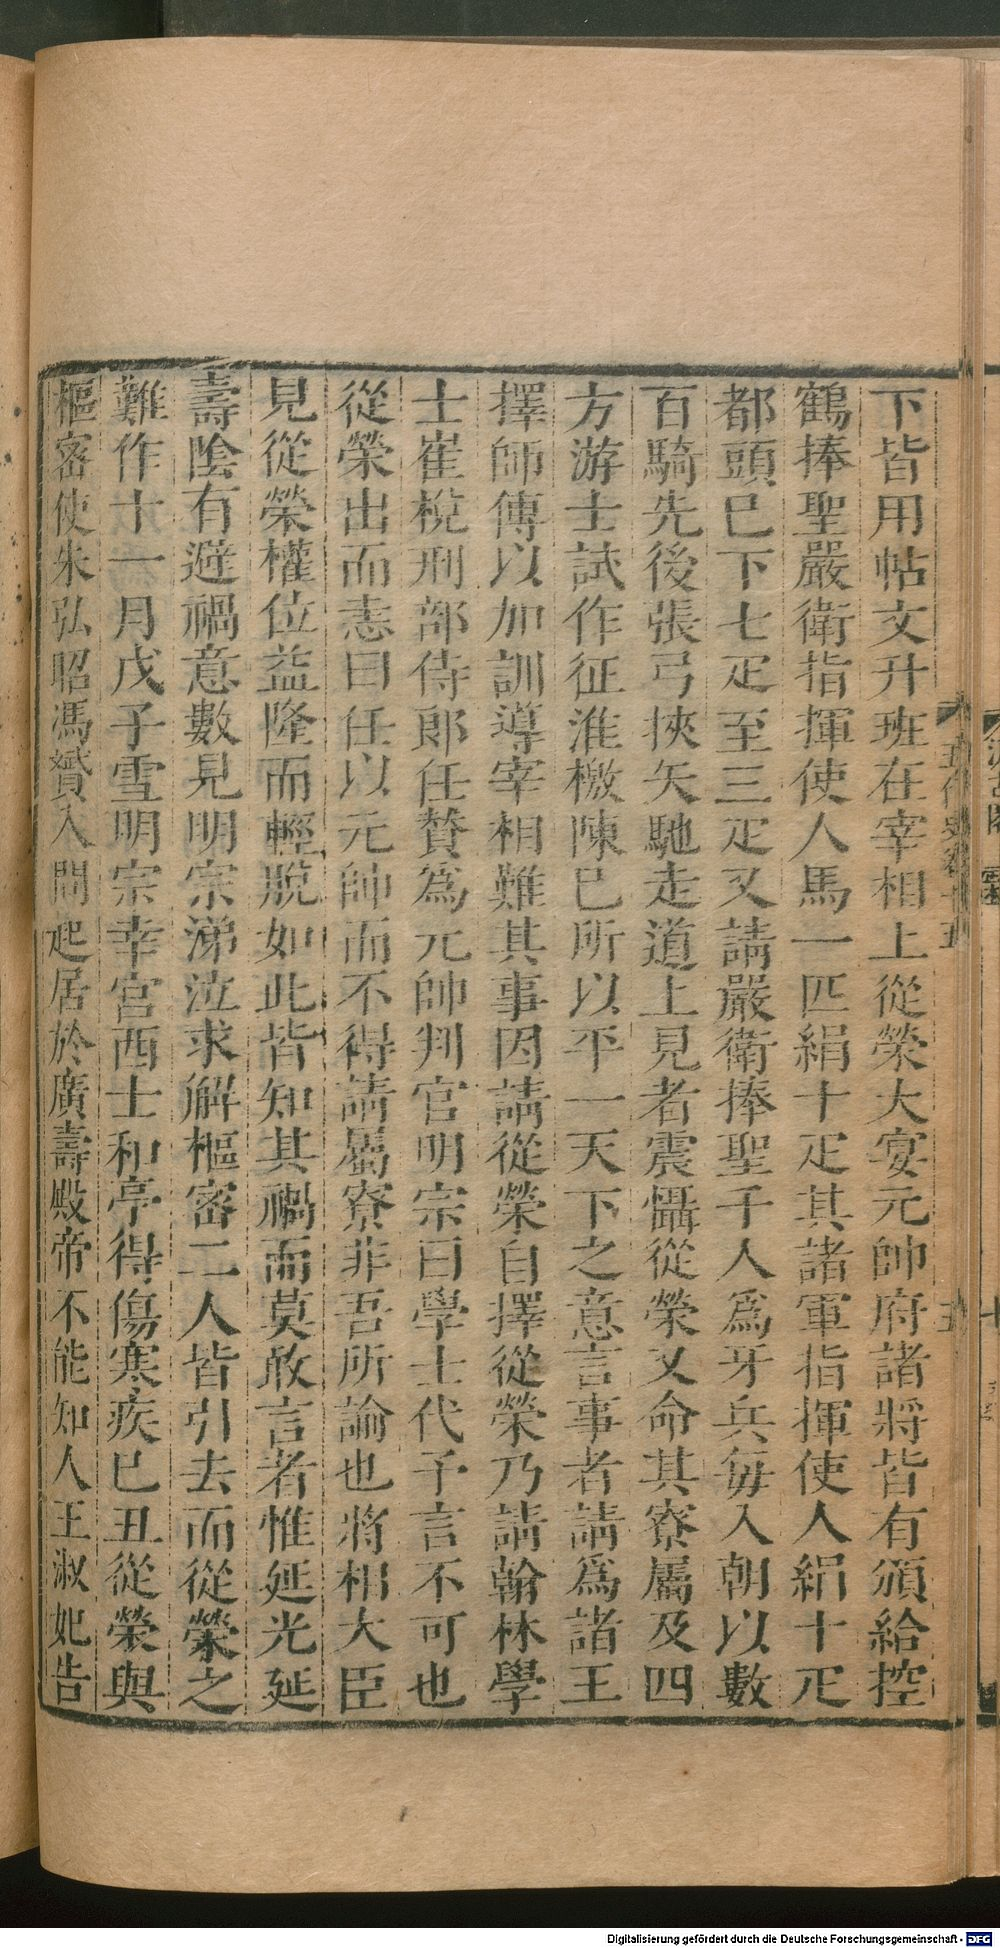 下皆用帖文升班在宰相上從榮大宴元帥府諸將皆有頒給控
鶴捧聖嚴衛指揮使人馬一匹絹十疋其諸軍指揮使人絹十疋
都頭已下七疋至三疋又請嚴衛捧聖千人爲牙兵每入朝以數
百騎先後張弓挾矢馳走道上見者震懾從榮又命其寮屬及四
方游士試作征淮檄陳已所以平一天下之意言事者請爲諸王
擇師傅以加訓導宰相難其事因請從榮自擇從榮乃請翰林學
士崔梲刑部侍郎任贊爲元帥判官明宗曰學士代予言不可也
從榮出而恚曰任以元帥而不得請屬寮非吾所論也將相大臣
見從榮權位益隆而輕脫如此皆知其禍而莫敢言者惟延光延
壽陰有避禍意數見明宗涕泣求解樞密二人皆引去而從榮之
難作十一月戊子雪明宗幸宮西士和亭得傷寒疾已丑從榮與
樞密使朱弘昭馮贇入問起居於廣壽殿帝不能知人王淑妃告
五代史卷十五
五
Digitalisierung gefördert durch die Deutsche Forschungsgemeinschaft - DFG